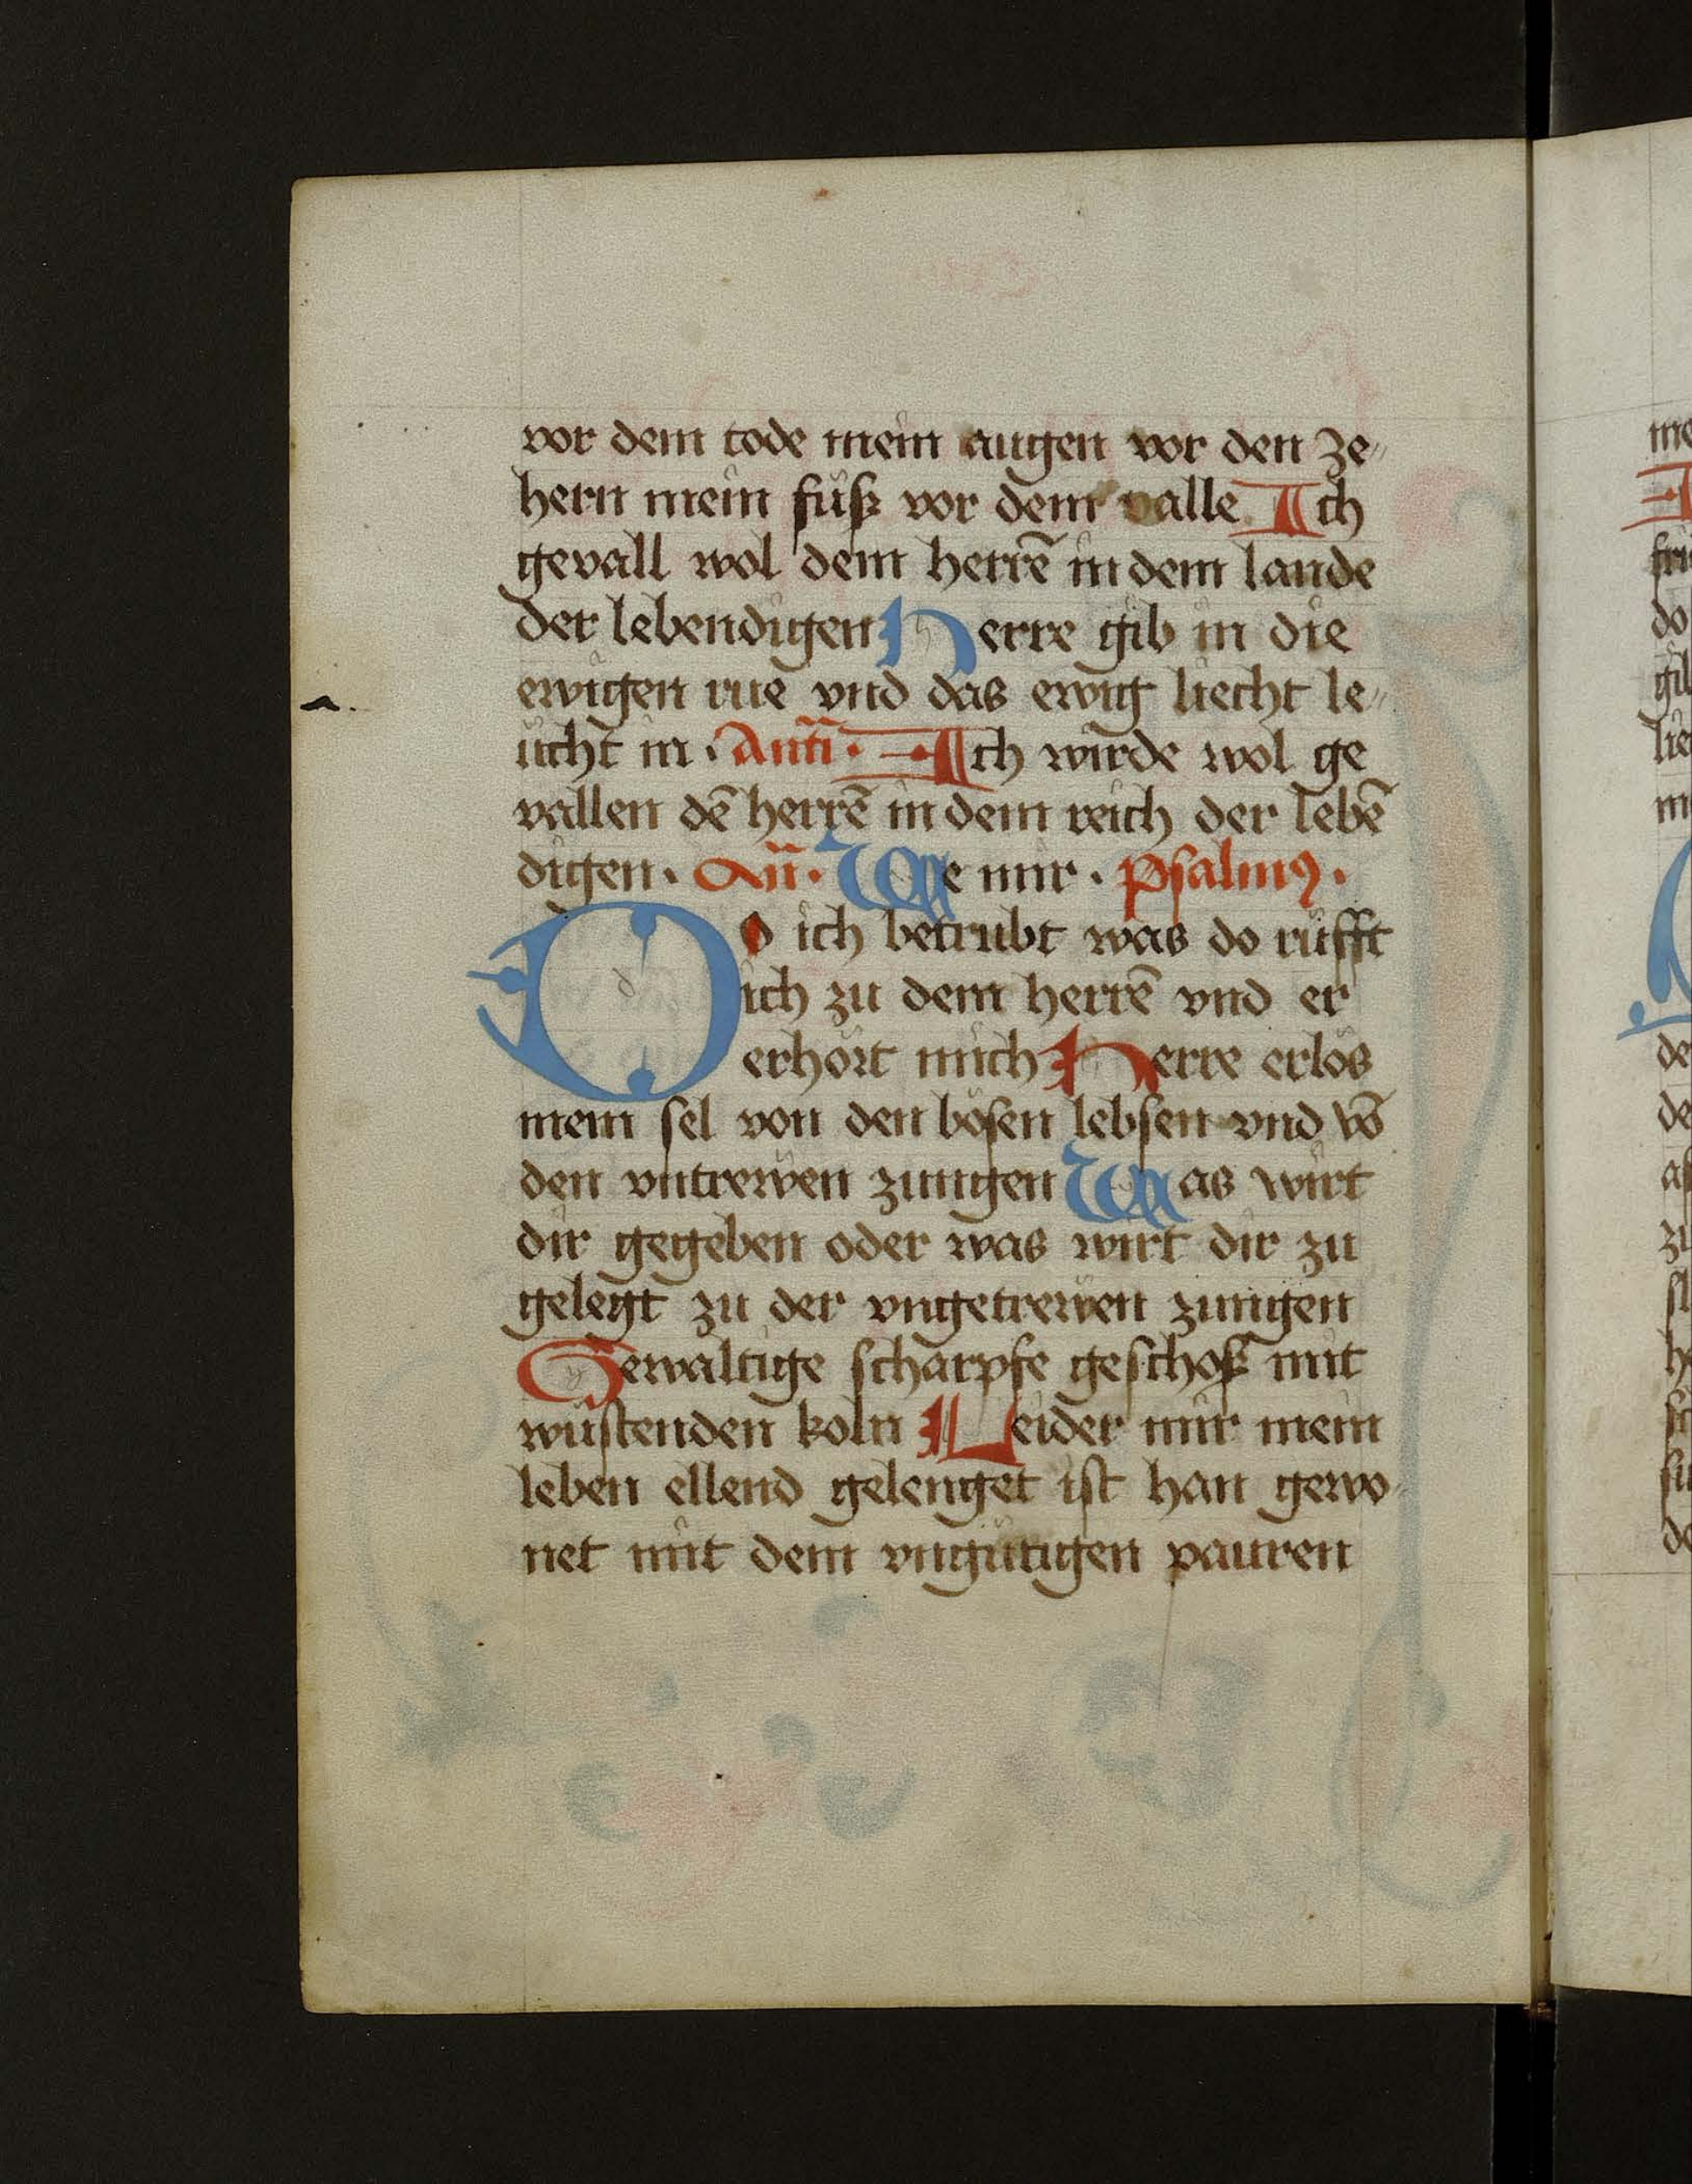 vor dem tode mein augen vor den ze〃
hern mein füsz vor dem valle Ich
gevall wol dem herrē in dem lande
der lebendigen Herre gib in die
ewigen rue vnd das ewig liecht le〃
ücht in · Anti̅ · Ich wirde wol ge
vallen dē herrē in dem reich der lebē
digen · An̅ · We mir · Psalmꝯ ·
Do ich betrubt was do rüfft
ich zu dem herrē vnd er
erhört mich Herre erlös
mein sel von den bösen lebsen vnd vō
den vntrewen zungen Was wirt
dir gegeben oder was wirt dir zu
gelegt zu der vngetrewen zungen
Gewaltige scharpfe geschosz mit
wüstenden koln Leider mir mein
leben ellend gelenget ist han gewo
net mit dem vngütigen pauren